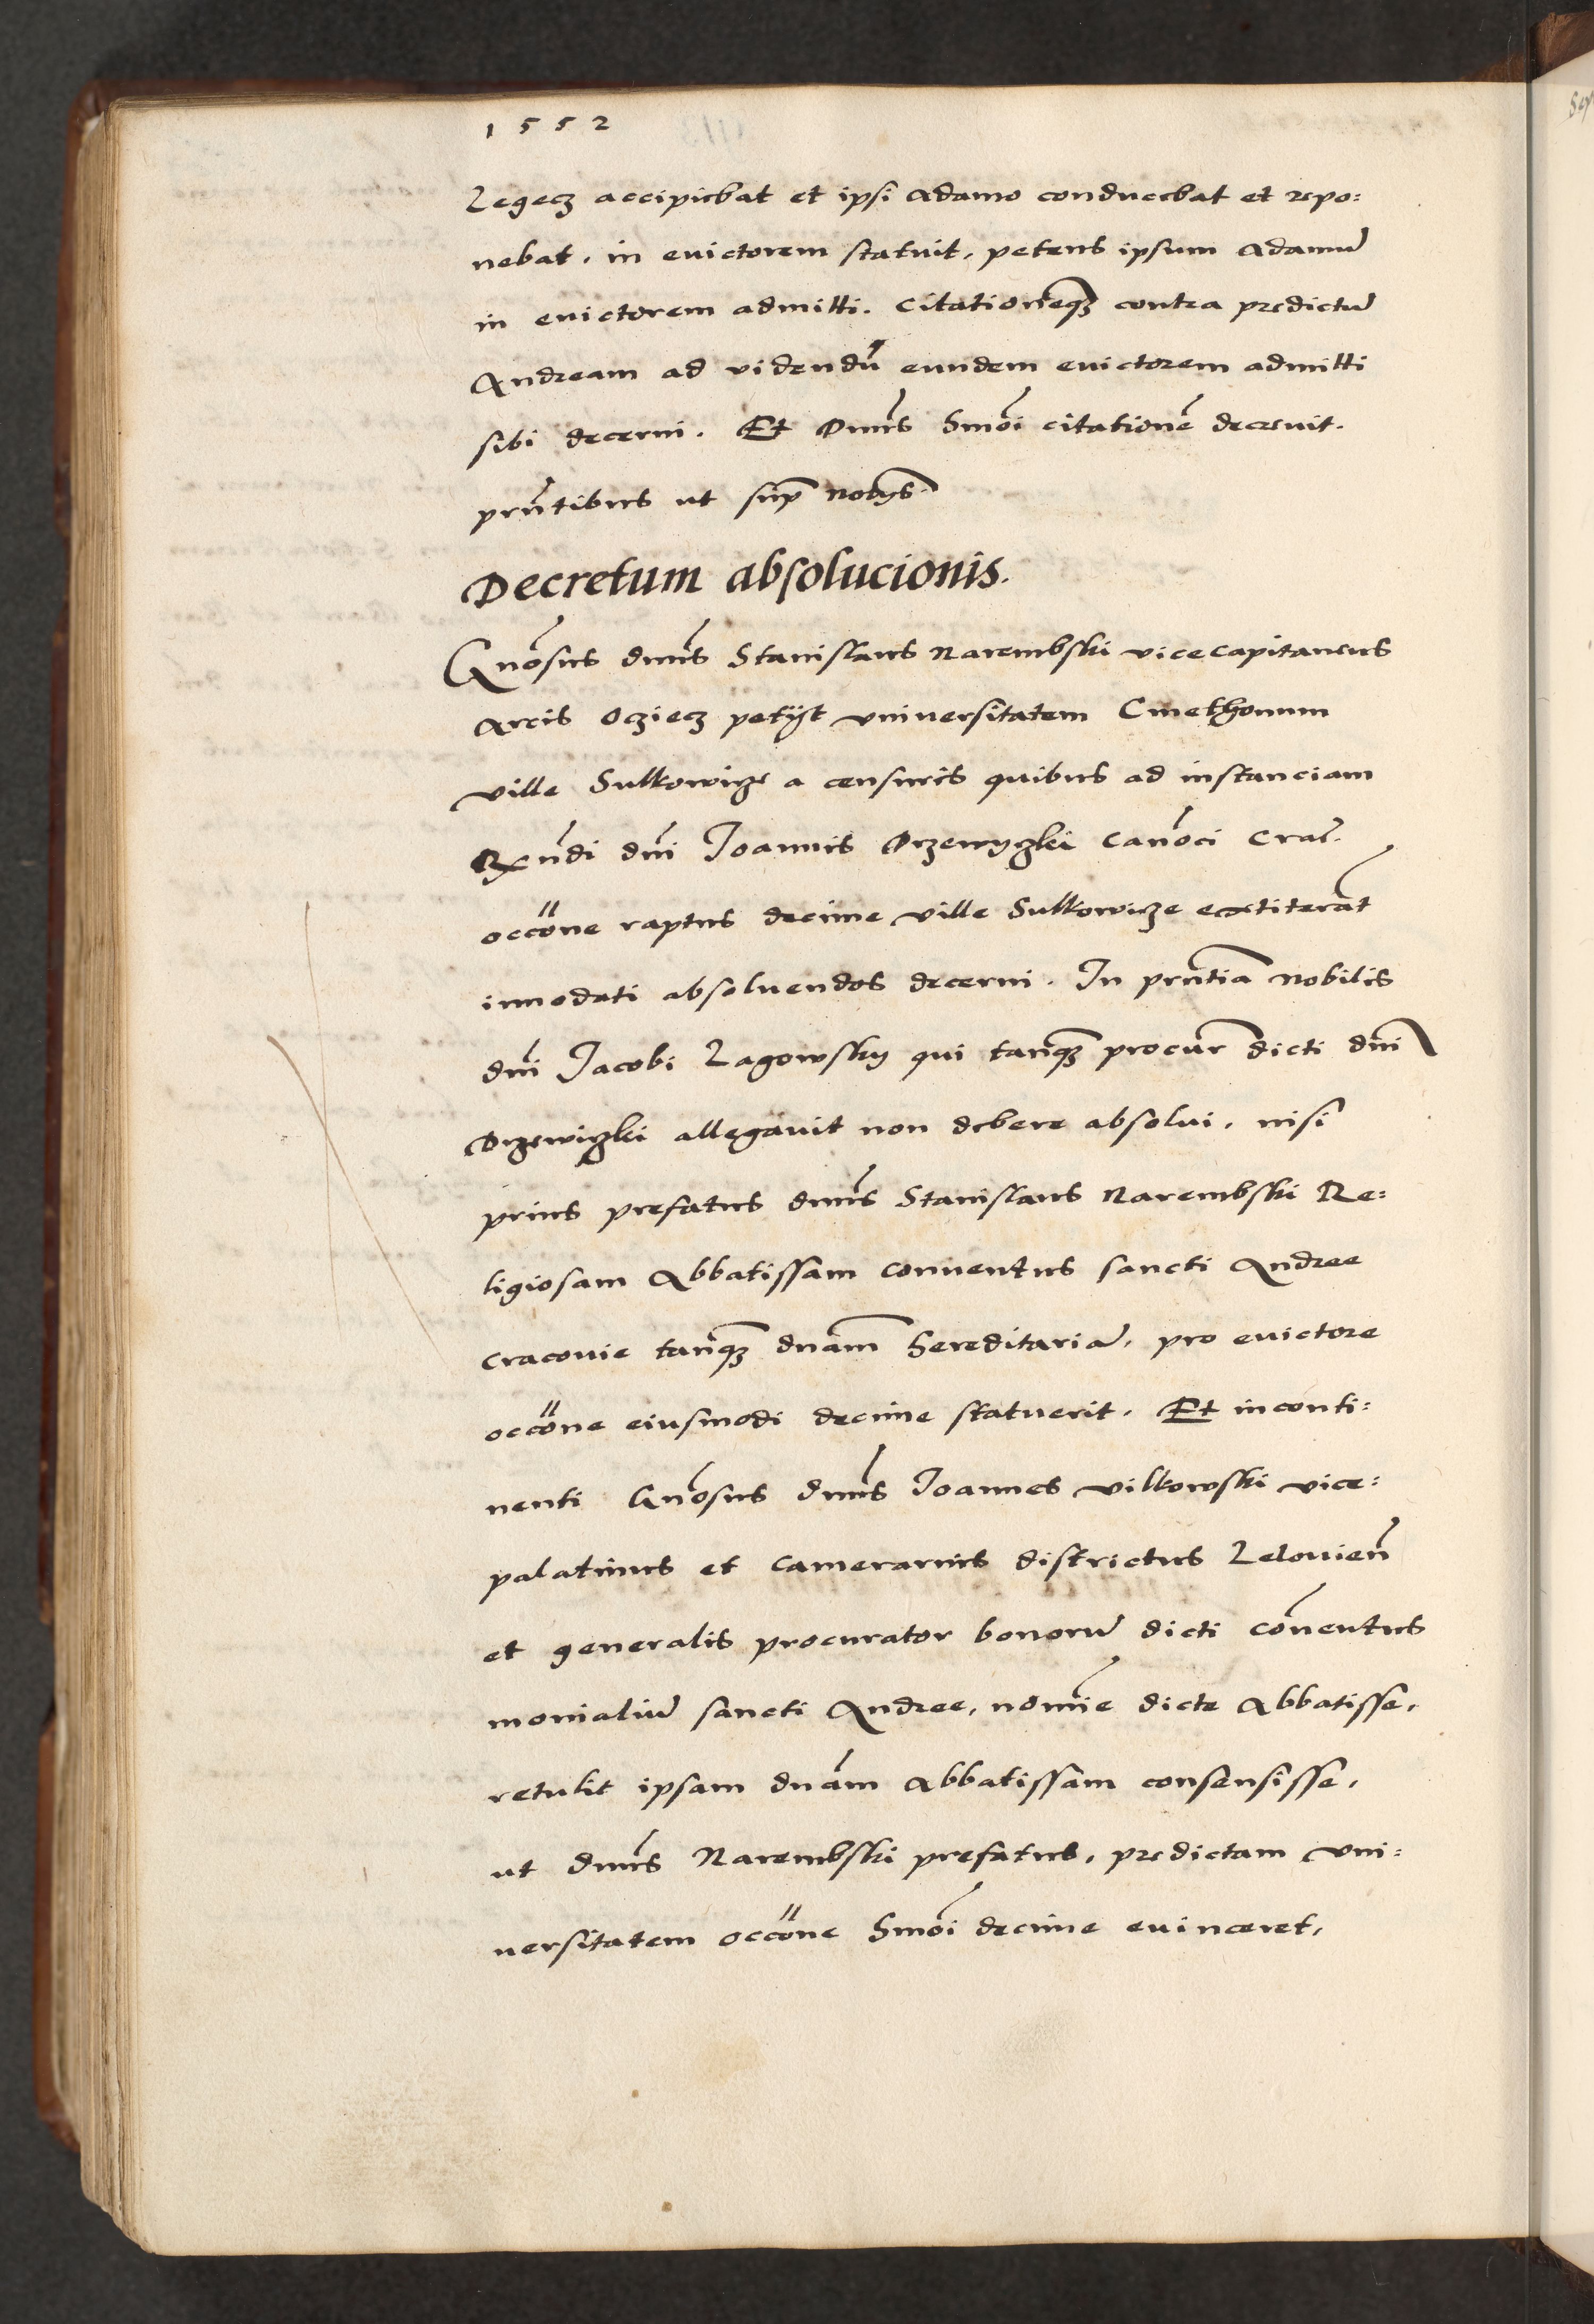 1552
Legecz accipiebat et ipsi Adamo conducebat et repo:
nebat, in evictorem statuit, petens ipsum Adamū
in evictorem admitti. Citationēqȝ contra predictū
Andream ad videndū eundem evictorem admitti
sibi decerni. Et Dnūs hmōi citationē decrevit.
prn̄tibus ut sup̄ nobys.
Decretum absolucionis.
Gn̄osus dnūs Stanislaus Narembski vicecapitaneus
Arcis Ocziecz petÿt vniversitatem Cmethonum
ville Sulkowicze a censuris quibus ad instanciam
Rn̄di dn̄i Joannis Drzewyczki Canōci Crac̄.
occōne raptus decime ville Sulkowicze extiterāt
innodati absolvendos decerni. In prn̄tia nobilis
dn̄i Jacobi Lagowsky qui tanqȝ procur̄ dicti dn̄i
Drzewiczki allegavit non debere absolui, nisi
prius prefatus dnūs Stanislaus Narembski Re:
ligiosam Abbatissam conventus sancti Andree
Cracovie tanqȝ dnam̄ hereditariā, pro evictore
occōne eiusmodi decime statuerit. Et inconti:
nenti Gn̄osus dnūs Joannes vilkowski vice:
palatinus et Camerarius districtus Leloviēn
et generalis procurator bonorū dicti cōventus
monialiū sancti Andree, nomīe dicte Abbatisse,
retulit ipsam dnām Abbatissam consensisse,
ut dnūs Narembski prefatus, predictam vni:
versitatem occōne hmōi decime evinceret,